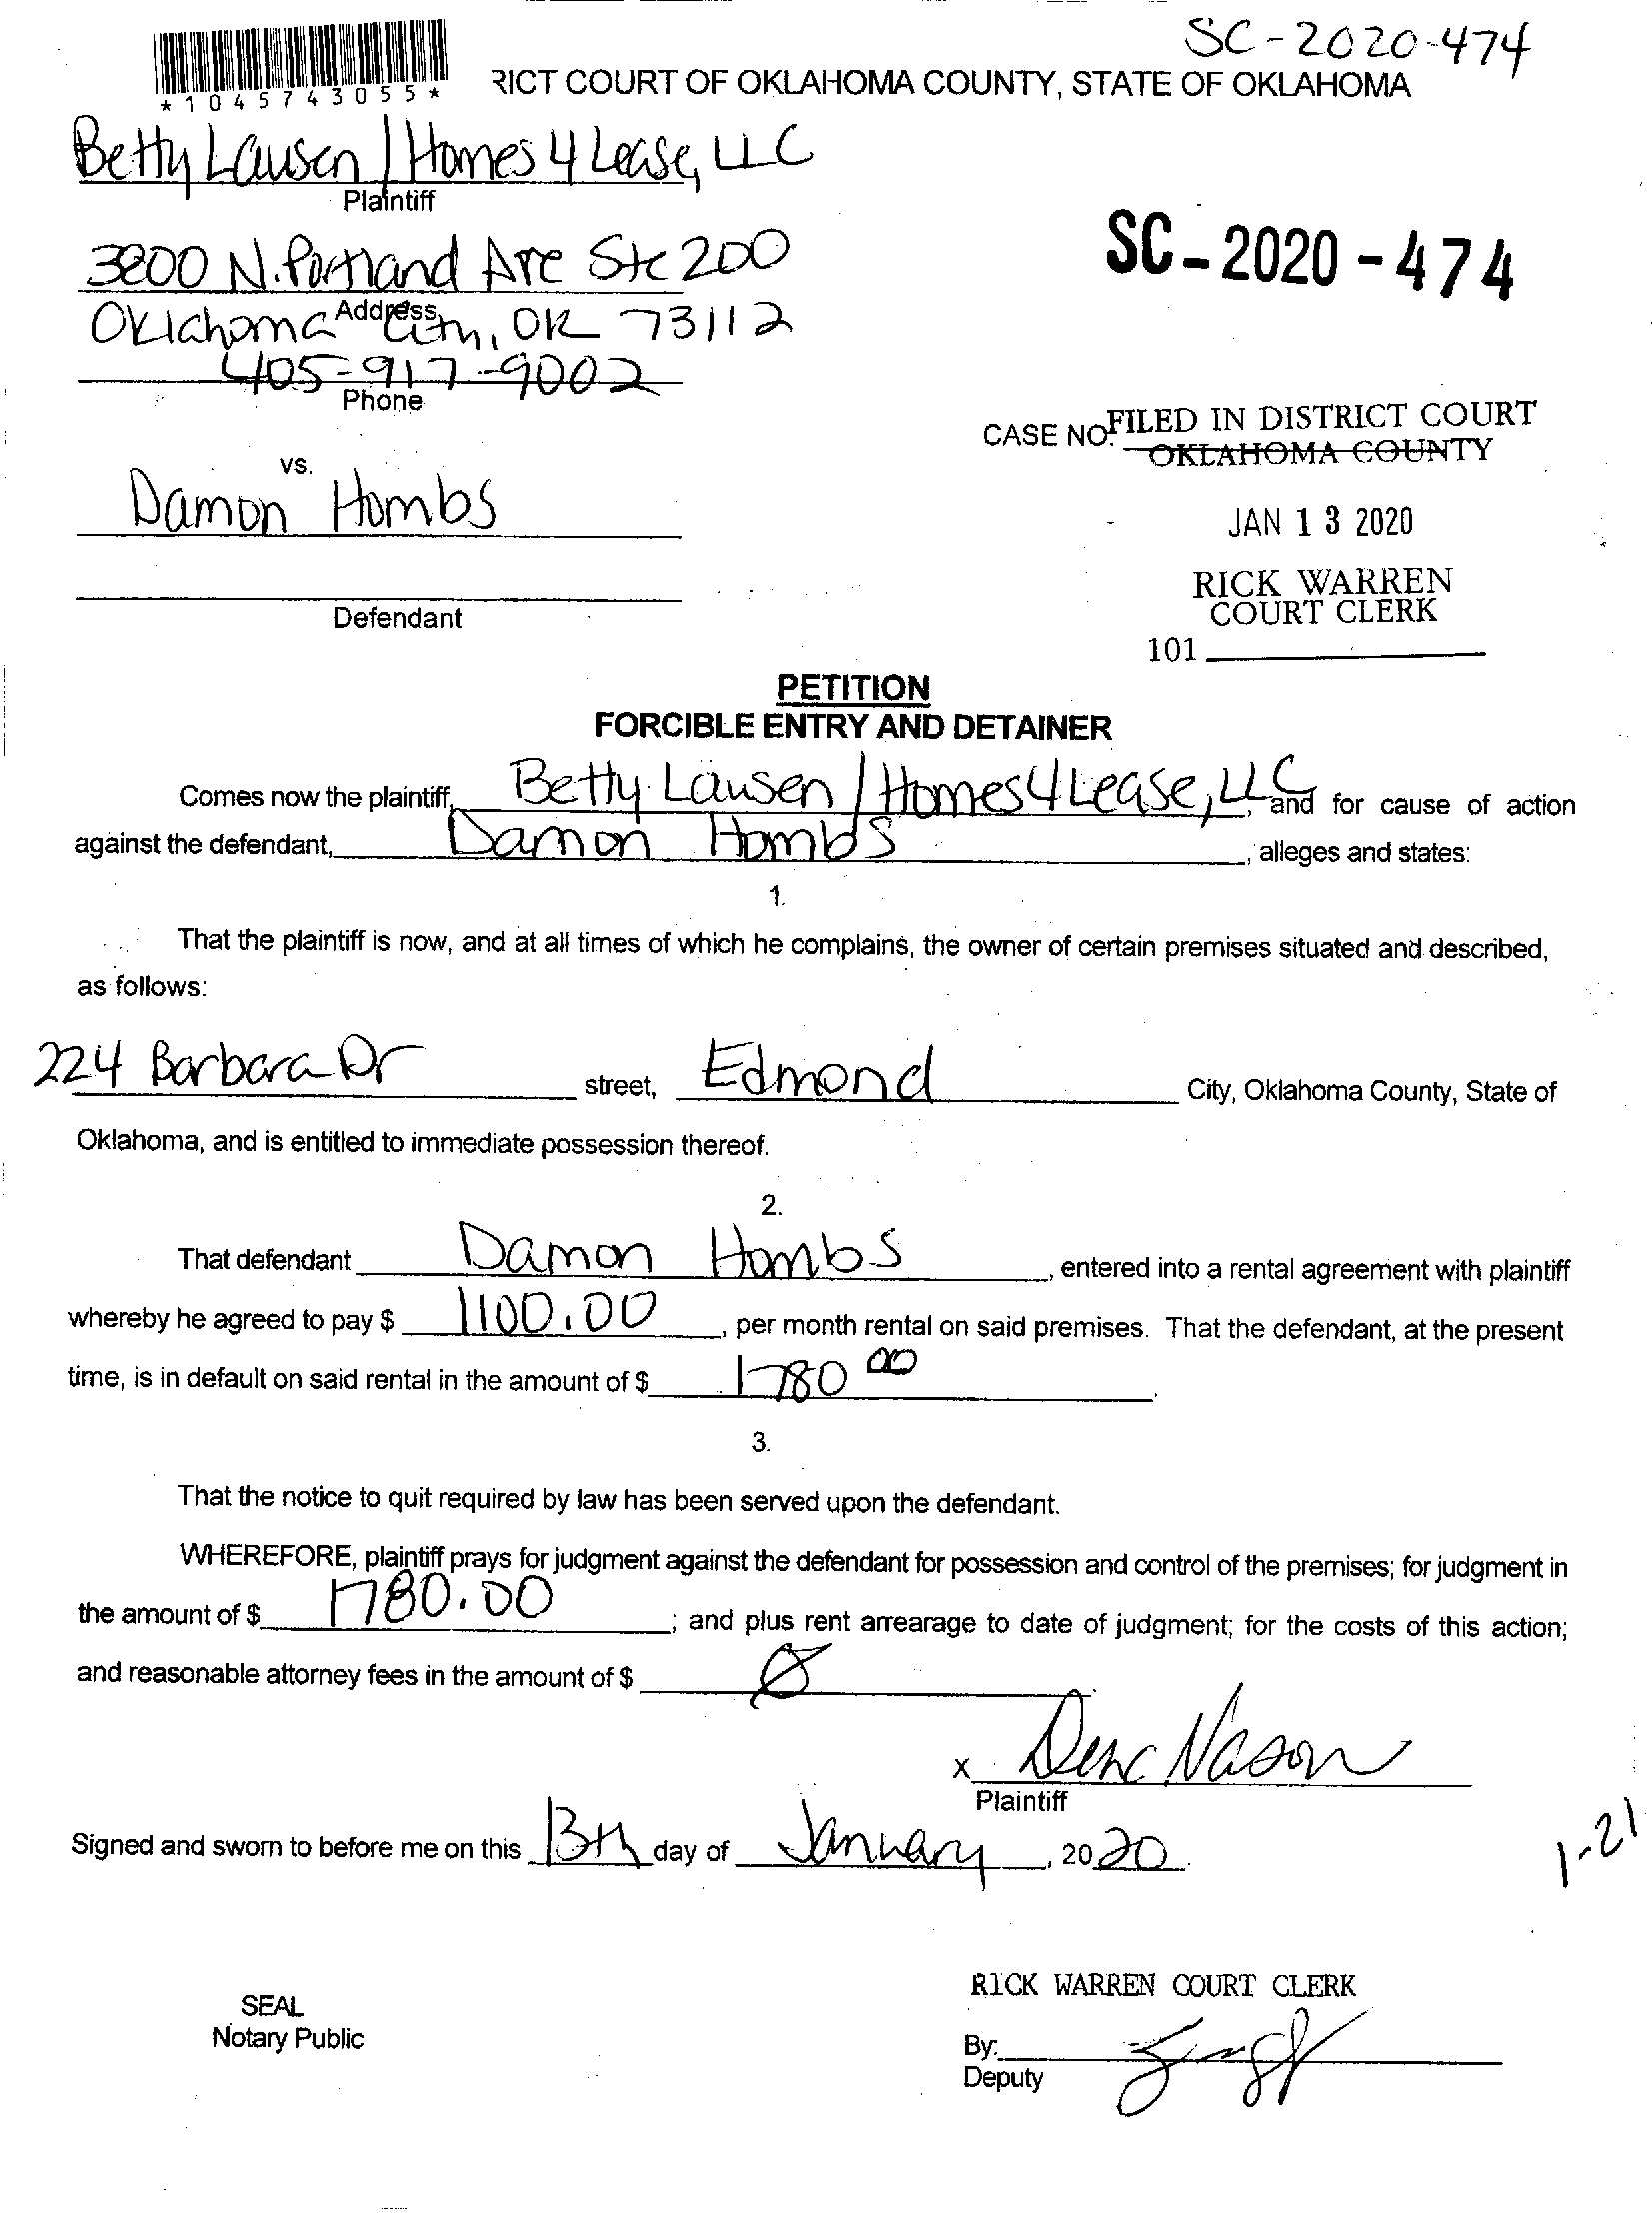 SC-2020-474
*1045743055*
RICT COURT OF OKLAHOMA COUNTY, STATE OF OKLAHOMA
Betty Lausen / Homes 4 Lease, LLC
Plaintiff
3800 N. Portland Ave Ste 200
Address
Oklahoma City, OK 73112
405-917-9002
Phone
SC-2020-474
vs.
Damon Hombs
Defendant
CASE NO. FILED IN DISTRICT COURT
OKLAHOMA COUNTY
JAN 13 2020
RICK WARREN
COURT CLERK
101
PETITION
FORCIBLE ENTRY AND DETAINER
Comes now the plaintiff, Betty Lausen / Homes 4 Lease, LLC, and for cause of action
against the defendant, Damon Hombs, alleges and states:
1.
That the plaintiff is now, and at all times of which he complains, the owner of certain premises situated and described,
as follows:
224 Barbara Dr street, Edmond City, Oklahoma County, State of
Oklahoma, and is entitled to immediate possession thereof.
2.
That defendant Damon Hombs, entered into a rental agreement with plaintiff
whereby he agreed to pay $ 1100.00, per month rental on said premises. That the defendant, at the present
time, is in default on said rental in the amount of $ 1780 00.
3.
That the notice to quit required by law has been served upon the defendant.
WHEREFORE, plaintiff prays for judgment against the defendant for possession and control of the premises; for judgment in
the amount of $ 1780.00; and plus rent arrearage to date of judgment; for the costs of this action;
and reasonable attorney fees in the amount of $ Ø
X Nason
Plaintiff
Signed and sworn to before me on this 13th day of January, 2020.
1-21
SEAL
Notary Public
RICK WARREN COURT CLERK
By:
Deputy